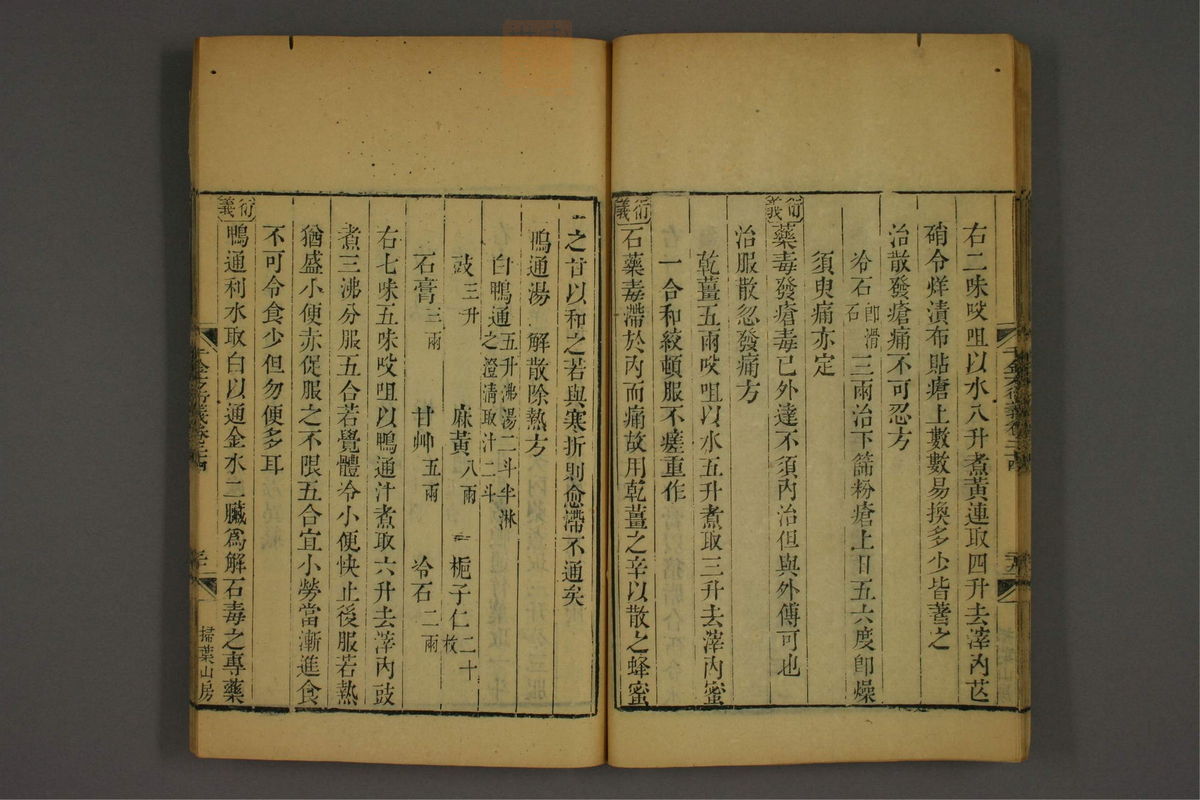 右二味㕮咀以水八升煮黃連取四升去滓內芒
硝令烊漬布貼瘡上數數易換多少皆著之
治散發瘡痛不可忍方
冷石卽滑石三兩治下篩粉瘡上日五六度卽燥
須臾痛亦定
衍義藥毒發瘡毒已外達不須內治但與外傅可也
治服散忽發痛方
乾薑五兩㕮咀以水五升煮取三升去滓內蜜
一合和絞頓服不瘥重作
衍義石藥毒滯於內而痛故用乾薑之辛以散之蜂蜜
之甘以和之若與寒折則愈滯不通矣
鴨通湯 解散除熱方
白鴨通五升沸湯二斗半淋之澄清取汁二斗 麻黃八兩 梔子仁二十枚
豉三升
石膏三兩 甘艸五兩 冷石二兩
右七味五味㕮咀以鴨通汁煮取六升去滓內豉
煮三沸分服五合若覺體冷小便快止後服若熱
猶盛小便赤促服之不限五合宜小勞當漸進食
不可令食少但勿便多耳
衍義鴨通利水取白以通金水二臟爲解石毒之專藥
千金方衍義卷二十四
掃葉山房